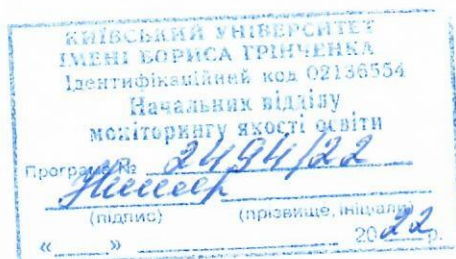 КИЇВСЬКИЙ УНІВЕРСИТЕТ
ІМЕНІ БОРИСА ГРІНЧЕНКА
Ідентифікаційний код 02136554
Начальник відділу
моніторингу якості освіти
Програма № 2494/22
(підпис) (прізвище, ініціали)
«    » 2022р.